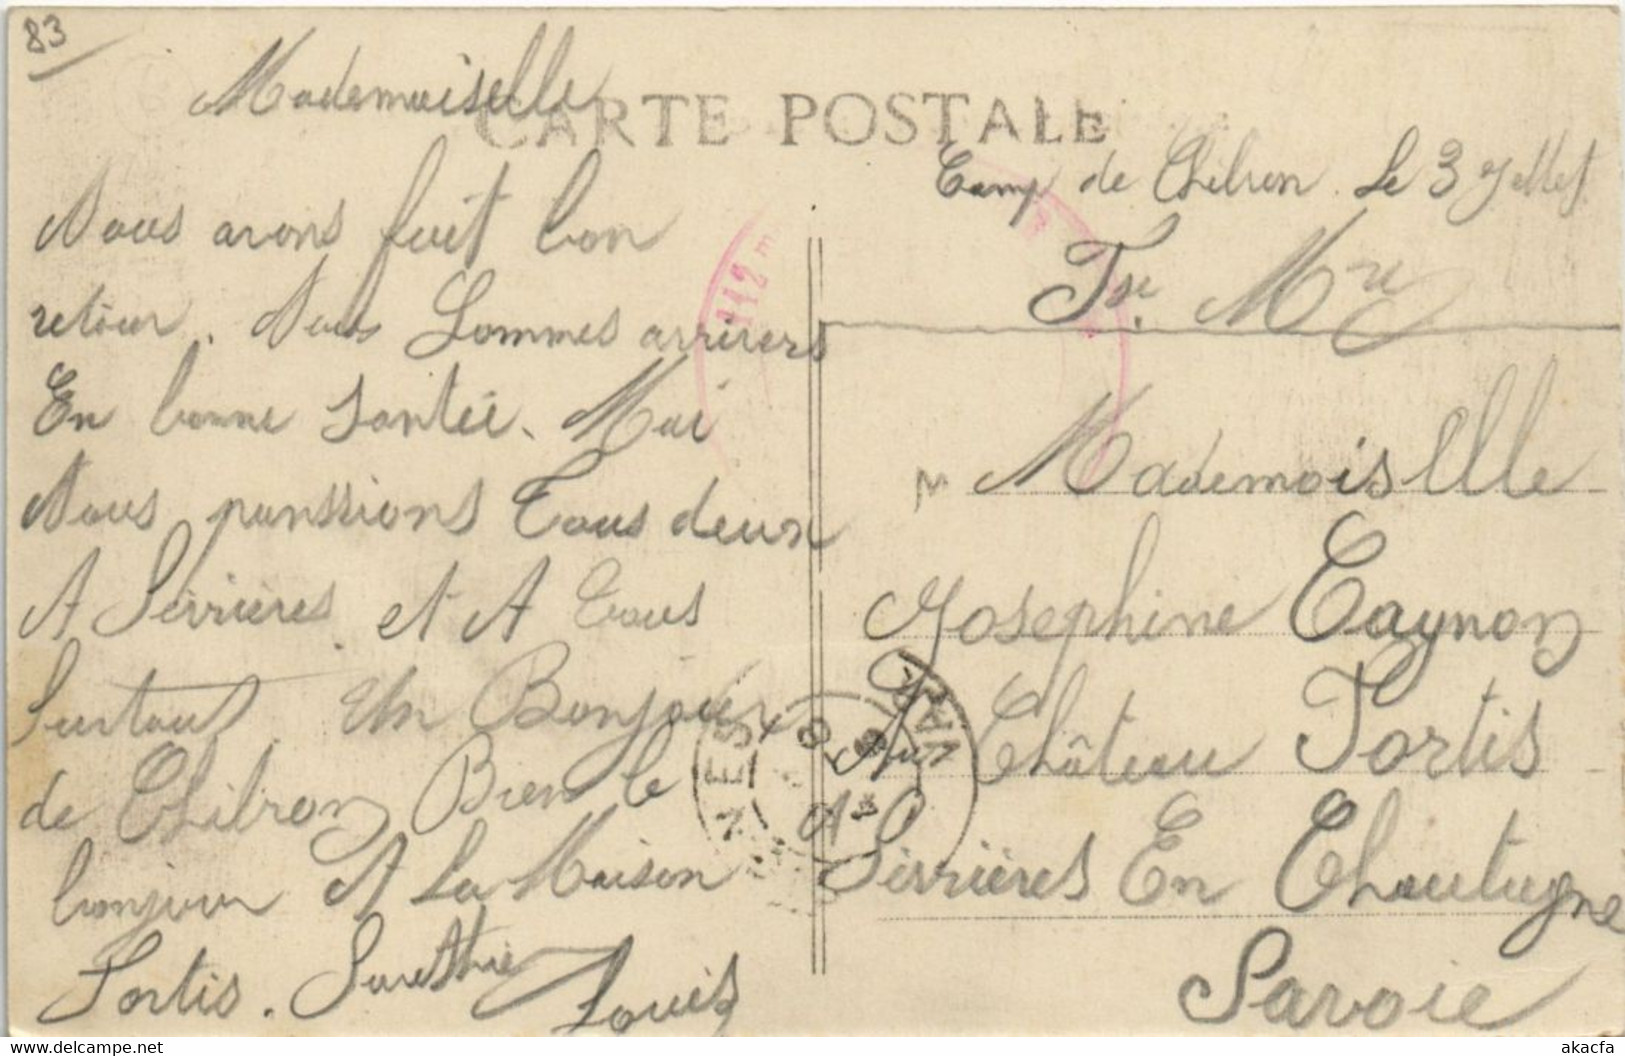 83
CARTE POSTALE
Mademoiselle
Nous avons fait bon
retour. Nous Sommes arrivers
En bonne santée. Mai
Nous panssions Tous deux
A Serrières et A Tous
Surtout Un Bonjour
de Chibron Bien le
bonjour A La Maison
Fortis.
Louis
Camp de Chibron. Le 3 Jellet
Fse. Mre
Mademoiselle
Josephine Caynon
Au Château Fortis
A Serrières En Chautugne
Savoie
112
VAR
akacfa
www.delcampe.net